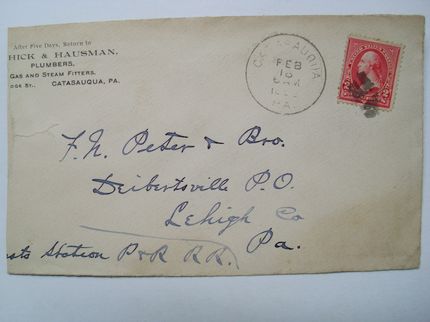 After Five Days, Return to
HICK & HAUSMAN,
PLUMBERS,
GAS AND STEAM FITTERS,
ST., CATASAUQUA, PA.
CATASAUQUA
FEB
PA.
F. N. Peter & Bro.
Deibertsville P.O.
Lehigh Co
Pa.
Station P & R R.R.